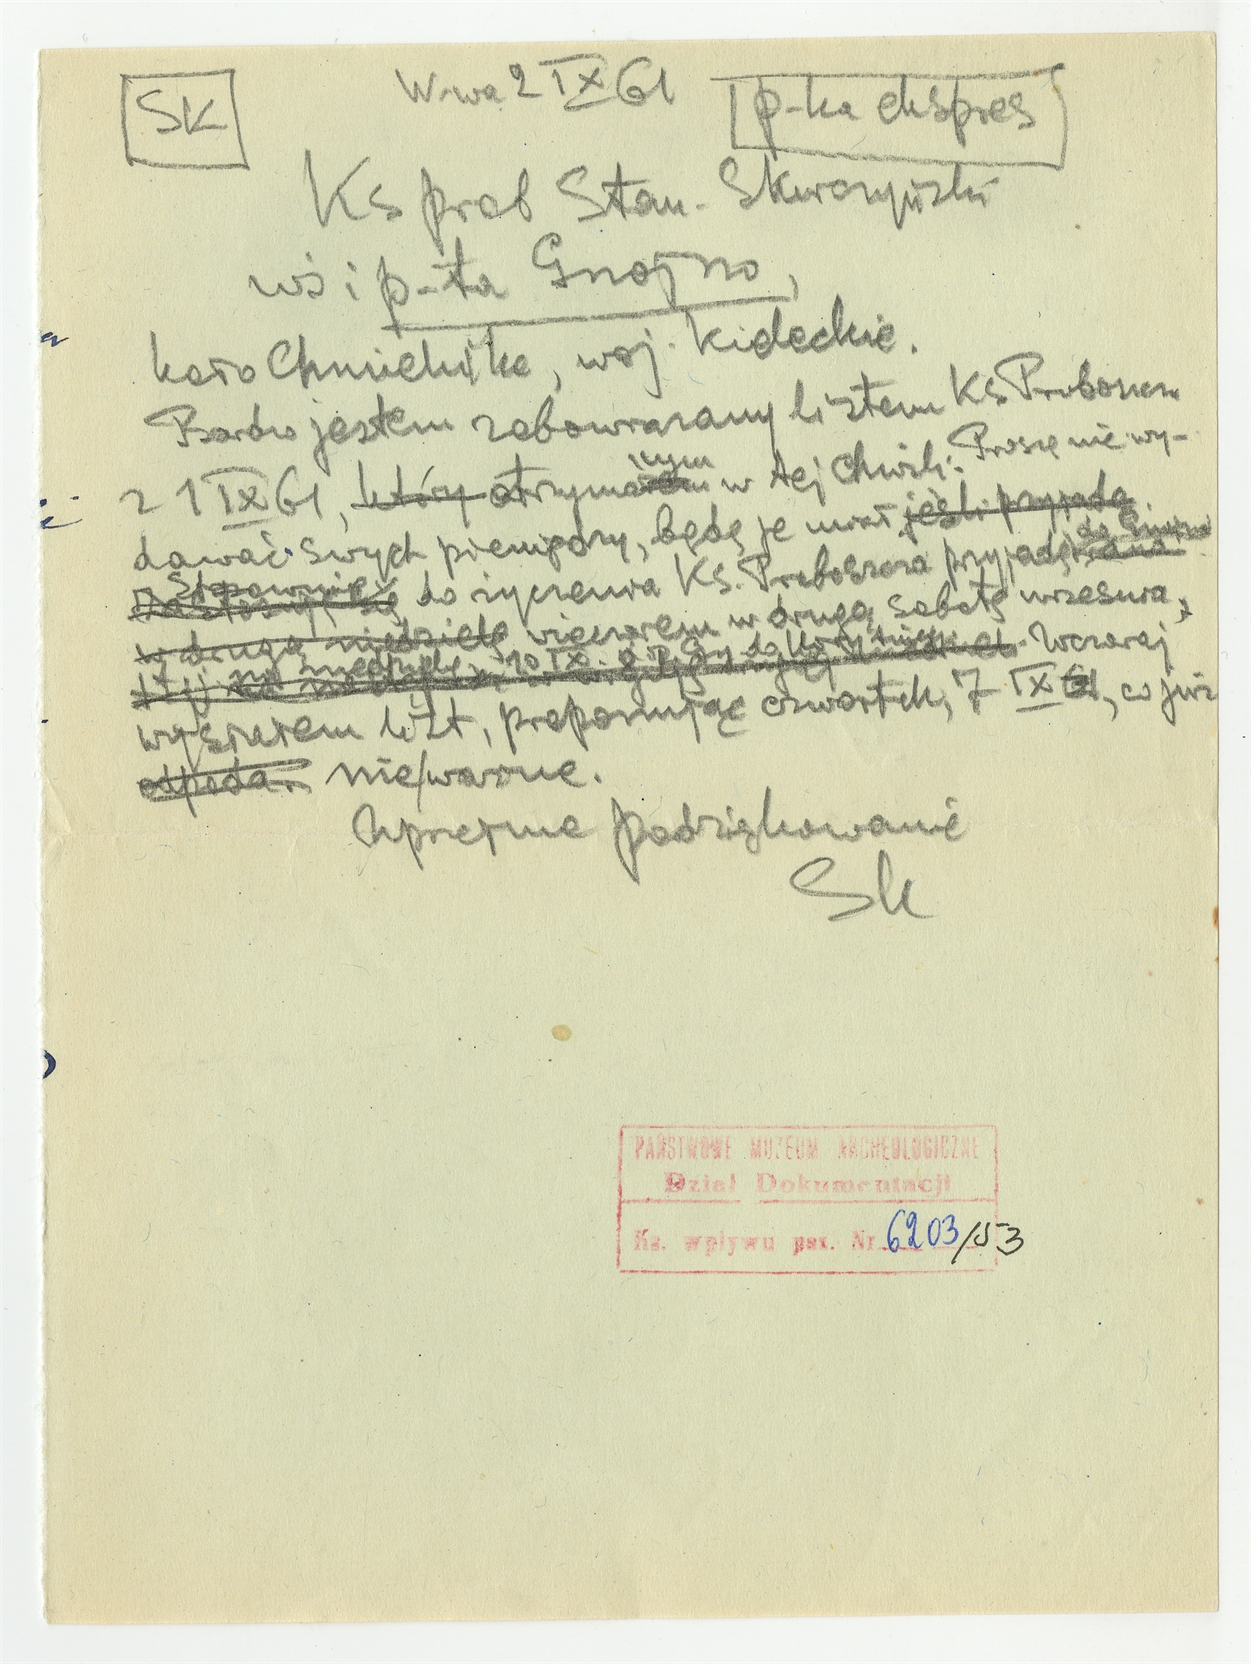 SK
W-wa 2 IX 61
p-ka ekspres
Ks prob Stan. Skurczyński
wś i p-ta Gnojno,
koło Chmielnika, woj. kieleckie.
Bardzo jestem zobowiązany listem Ks Proboszcza
z 1 IX 61, który otrzymanym w tej chwili. Proszę nie wy-
dawać swych pieniędzy, będę je miał jeśli przyjadę
Stosownie do życzenia Ks. Proboszcza przyjadę do Gnojna
w drugą niedzielę wieczorem w drugą sobotę września,
tj niedzielę 10 IX. Wczoraj
wysłałem list, proponując czwartek, 7 IX 61, co już
odpada nieważne.
Uprzejme podziękowanie
SK
PAŃSTWOWE MUZEUM ARCHEOLOGICZNE
Dział Dokumentacji
Ks. wpływu poz. Nr 6203/53